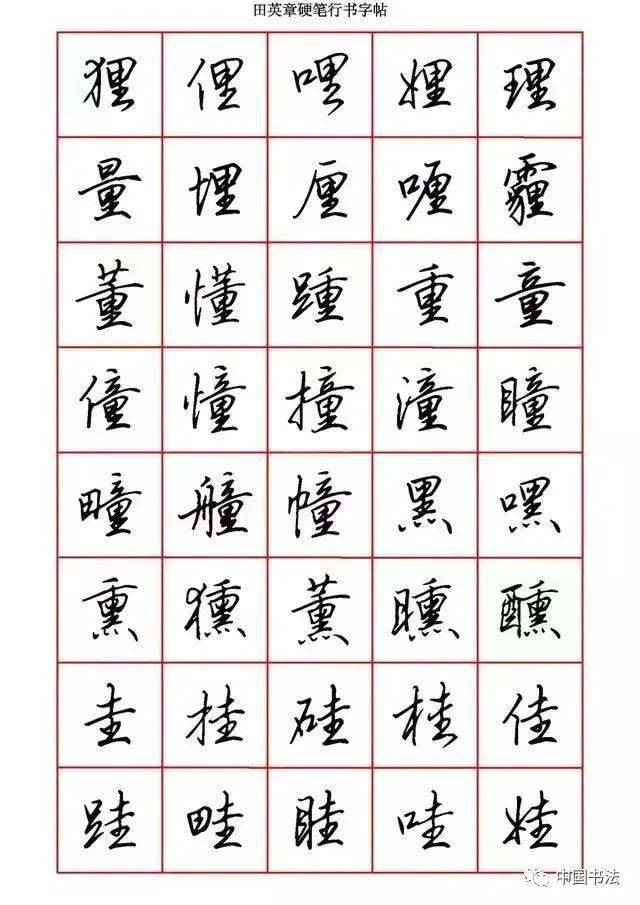 田英章硬笔行书字帖
狸俚哩娌理
量埋厘喱霾
董懂踵重童
僮憧撞潼瞳
疃艟幢黑嘿
熏獯薰曛醺
圭挂硅桂佳
跬畦眭哇娃
中国书法